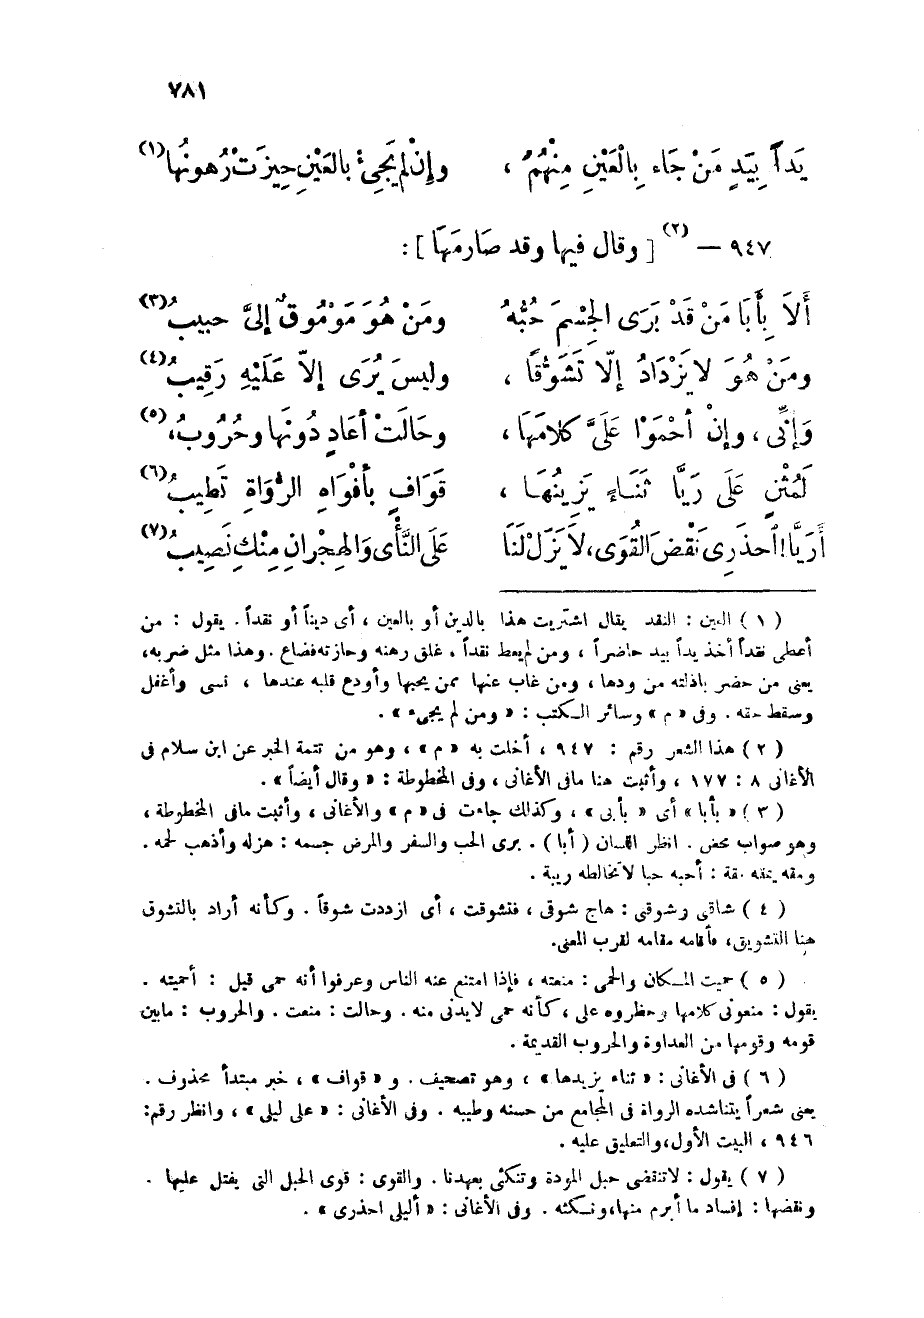 ٧٨١
يَداً بِيَدٍ مَنْ جَاء بِالْعَيْنِ مِنْهُمُ ، وإِنْ لم يَجِئْ بالعَيْنِ حِيزَتْ رُهونُها (١)
٩٤٧ — (٢) [ وقال فيها وقد صَارمَهَا ] :
أَلاَ بِأَبَا مَنْ قَدْ بَرَى الجِسْمَ حُبُّهُ ومَنْ هُوَ مَوْمُوقٌ إِلىَّ حبيبُ (٣)
ومَنْ هُوَ لا يَزْدَادُ إلّا تَشَوُّقًا ، وليسَ يُرَى إلاّ عَلَيْهِ رَقِيبُ (٤)
وَإِنِّى ، وإِنْ أحْمَوْا عَلَىَّ كلامَهَا ، وحَالَتْ أعَادٍ دُونَها وحُرُوبُ، (٥)
لَمُثْنٍ عَلَى رَيَّا ثَنَاءً يَزِينُهَا ، قَوَافٍ بأفْوَاهِ الرُّوَاةِ تَطِيبُ (٦)
أَرَيَّا! أحذَرِى نَقْضَ القُوَى، لاَ يَزَلْ لنَا عَلَى النَّأْى وَالهِجْرانِ مِنْكِ نَصِيبُ (٧)
( ١ ) العين : النقد يقال اشتريت هذا بالدين أو بالعين ، أى ديناً أو نقداً . يقول : من
أعطى نقداً أخذ يداً بيد حاضراً ، ومن لم يعط نقداً ، غلق رهنه وحازته فضاع . وهذا مثل ضربه،
يعنى من حضر باذلته من ودها ، ومن غاب عنها ممن يحبها وأودع قلبه عندها ، نسى وأغفل
وسقط حقه . وفى « م » وسائر الكتب : « ومن لم يجىء » .
( ٢ ) هذا الشعر رقم : ٩٤٧ ، أخلت به « م » ، وهو من تتمة الخبر عن ابن سلام فى
الأغانى ٨ : ١٧٧ ، وأثبت هنا مافى الأغانى ، وفى المخطوطة : « وقال أيضاً » .
( ٣ ) « بأبا » أى « بأبى » ، وكذلك جاءت فى « م » والأغانى ، وأثبت مافى المخطوطة ،
وهو صواب محض . انظر اللسان ( أبا ) . برى الحب والسفر والمرض جسمه : هزله وأذهب لحمه .
ومقه يمقه مقة : أحبه حبا لا تخالطه ريبة .
( ٤ ) شاقى وشوقى : هاج شوقى ، فتشوقت ، أى ازددت شوقاً . وكأنه أراد بالتشوق
هنا التشويق، فأقامه مقامه لقرب المعنى.
( ٥ ) حميت المكان والحمى : منعته ، فإذا امتنع عنه الناس وعرفوا أنه حمى قيل : أحميته .
يقول : منعونى كلامها وحظروه على ، كأنه حمى لايدنى منه . وحالت : منعت . والحروب : مابين
قومه وقومها من العداوة والحروب القديمة .
( ٦ ) فى الأغانى : « ثناء يزيدها » ، وهو تصحيف . و « قواف » ، خبر مبتدأ محذوف .
يعنى شعراً يتناشده الرواة فى المجامع من حسنه وطيبه . وفى الأغانى : « على ليلى » ، وانظر رقم:
٩٤٦ ، البيت الأول، والتعليق عليه .
( ٧ ) يقول : لاتنقضى حبل المودة وتنكثى بعهدنا . والقوى : قوى الحبل التى يفتل عليها .
ونقضها : إفساد ما أبرم منها، ونكثه . وفى الأغانى : « أليلى احذرى » .